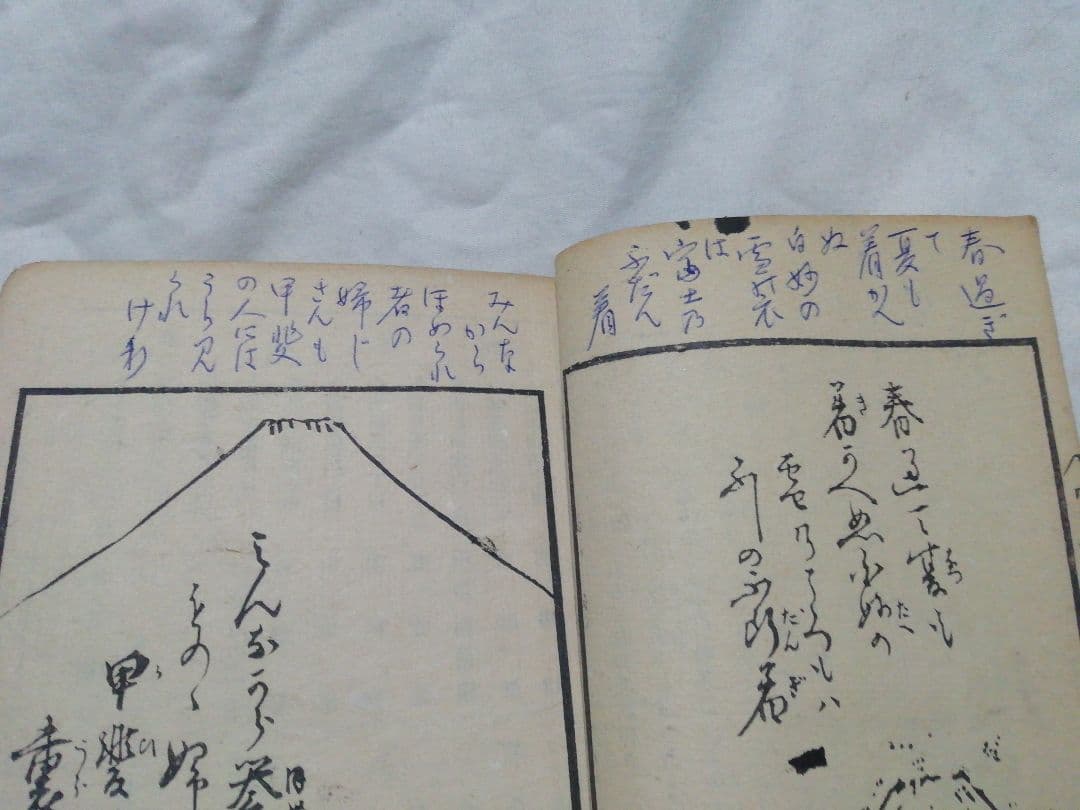 春過ぎ
て
夏も
着かへ
ぬ
白妙の
雪の衣
は
富士乃
ふだん
着
春過て夏も
着かへぬ白妙の
雪乃ころもハ
ふしの不断着
みんな
から
ほめられ
者の
婦じ
さんも
甲斐
の人には
うら見
られ
けり
みんなから
ものゝ婦
甲斐